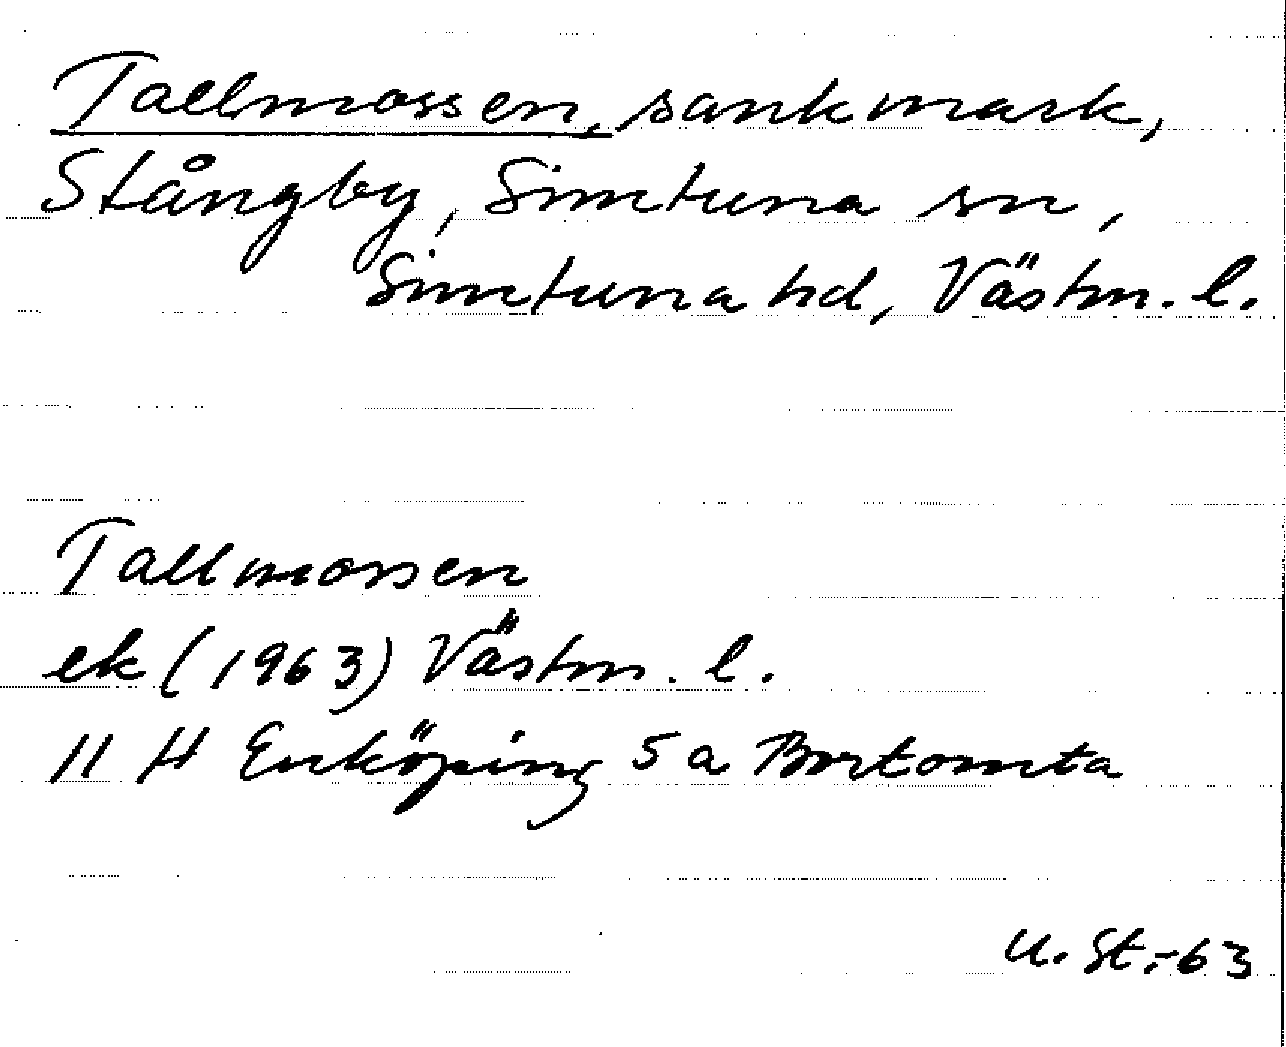 Tallmossen, sankmark,
Stångby, Simtuna sn,
Simtuna hd, Västm. l.
Tallmossen
ek (1963) Västm. l.
11 H Enköping 5 a Bortomta
U. St. -63